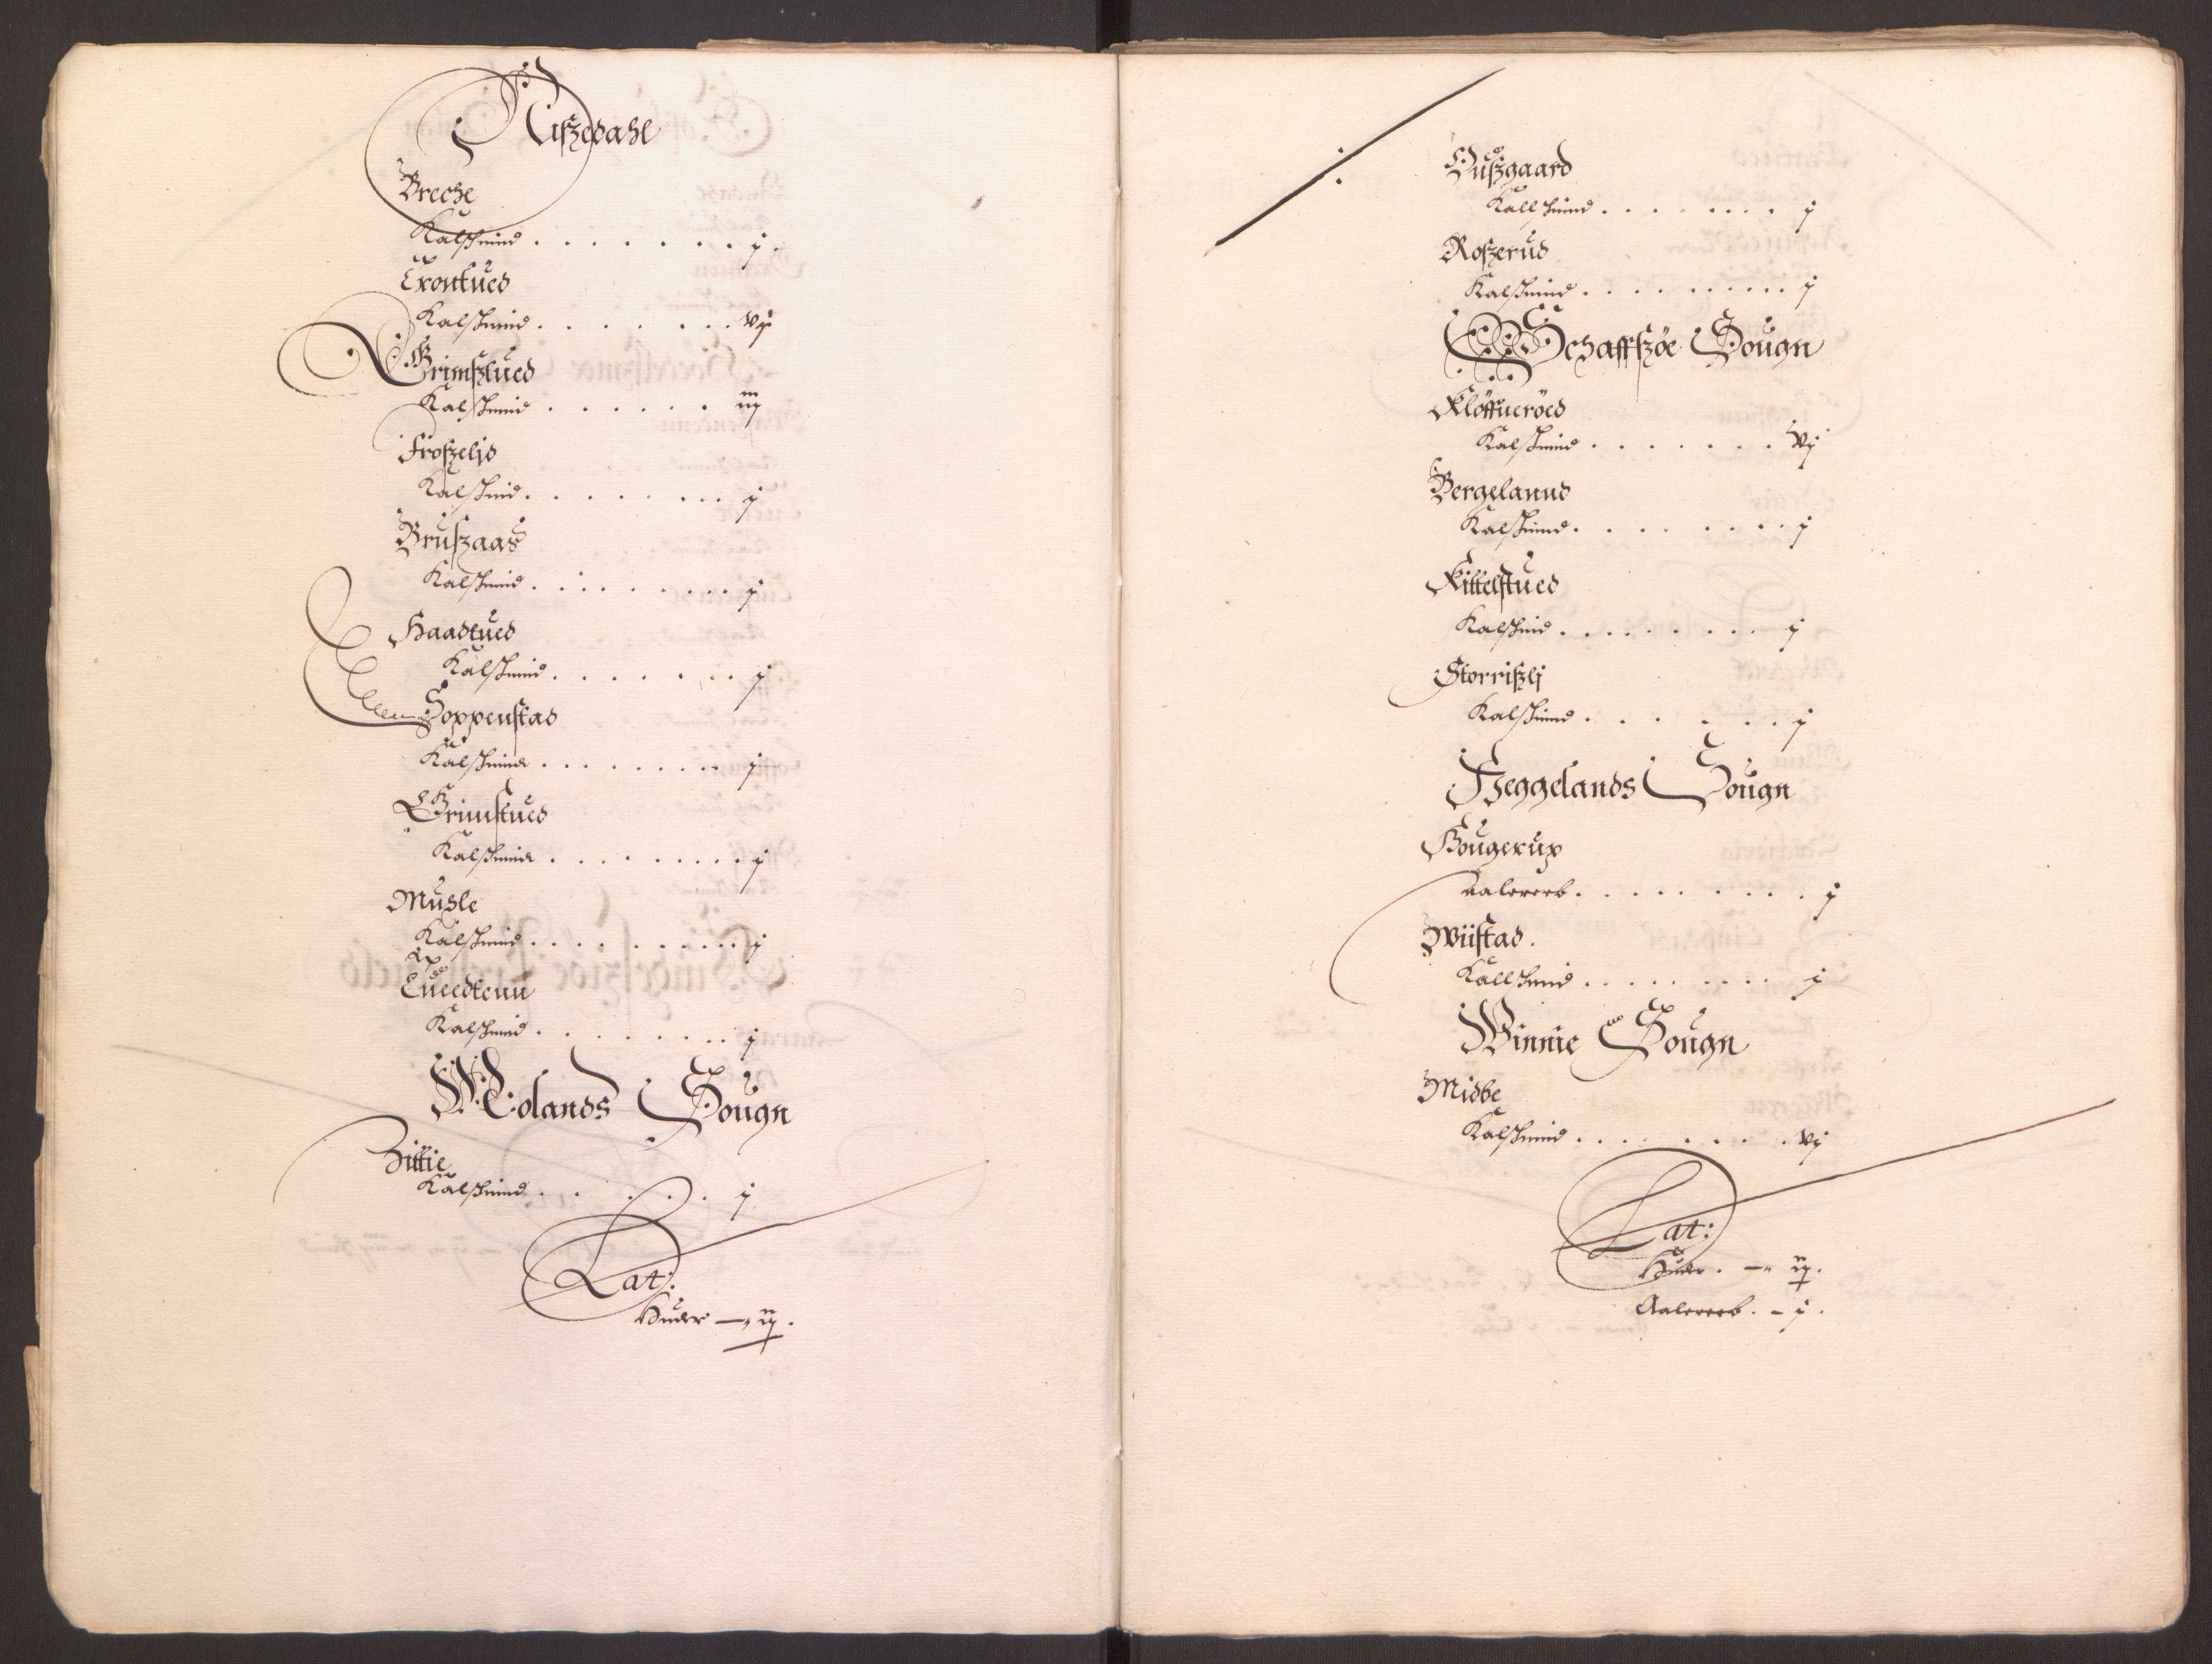 Niszedahl
Breche
Kalschind . . . . . . . . j.
Trontued
Kalschind . . . . . . . vj
Grimszlued
Kalschind . . . . . . iij
Froszelid
Kalschind . . . . . . . . j
Bruszaas
Kalschind . . . . . . . . j
Haadtued
Kalschind . . . . . . . j
Soppenstad
Kalschind . . . . . . . . . j
Grimstued
Kalschind . . . . . . . . . j
Musle
Kalschind . . . . . . . . . . j
Tueedtenn
Kalschind . . . . . . . . j
Molands Sougn
Zittie
Kalschind . . . . . . j
Lat:
Huder — ij.
Huszgaard
Kallschind . . . . . . . j
Roszerud
Kalschind . . . . . . . . . j
Schaffszöe Sougn
Klöffueröed
Kalschind . . . . . . . vj
Bergelannd
Kalschind . . . . . . . . j
Kittelstued
Kalschind . . . . . . . . . j
Storriszlj
Kalschind . . . . . . . j
Heggelands Sougn
Hougerup
Aalereeb . . . . . . . . . j
Zwistad.
Kallschind . . . . . . . . . j
Winnie Sougn
Midbe
Kalschind . . . . . . . . vj
Lat:
Huder. — ij.
Aalereeb. - j.